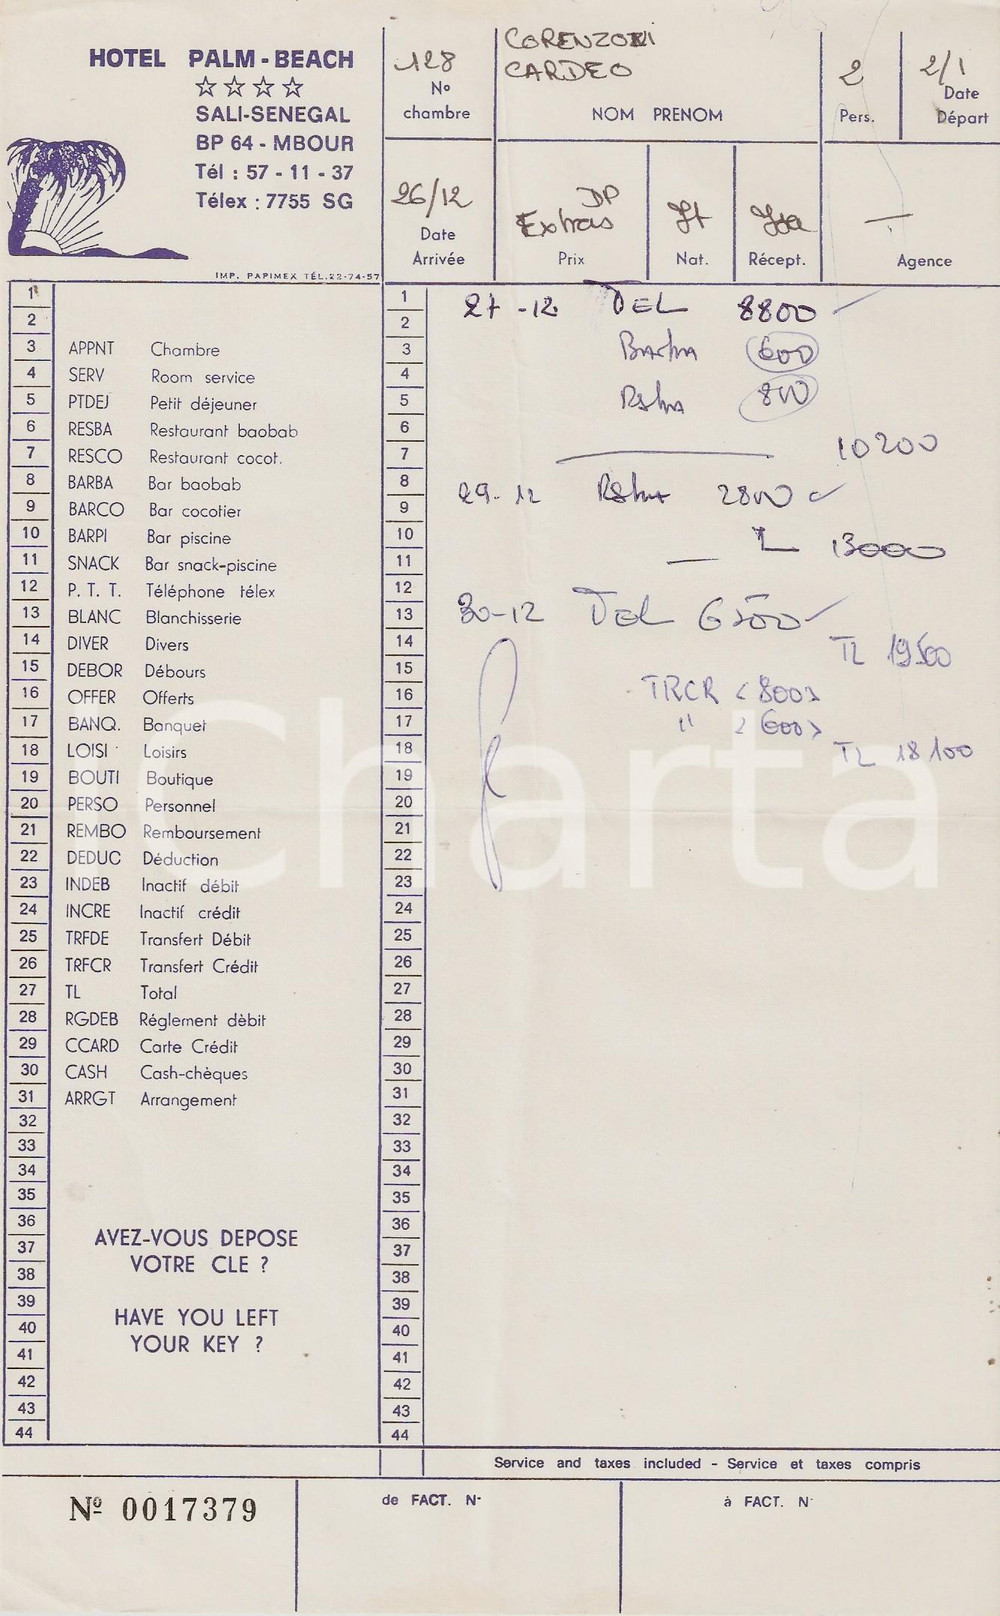 HOTEL PALM-BEACH
SALI-SENEGAL
BP 64 - MBOUR
Tél : 57 - 11 - 37
Télex : 7755 SG
IMP. PAPIMEX TÉL.22-74-57
128
N° chambre
CORENZONI
CARDEO
NOM PRENOM
2
Pers.
2/1
Date Départ
26/12
Date Arrivée
DP
Extras
Prix
It
Nat.
Récept.
—
Agence
1
2
3 APPNT Chambre
4 SERV Room service
5 PTDEJ Petit déjeuner
6 RESBA Restaurant baobab
7 RESCO Restaurant cocot.
8 BARBA Bar baobab
9 BARCO Bar cocotier
10 BARPI Bar piscine
11 SNACK Bar snack-piscine
12 P. T. T. Téléphone télex
13 BLANC Blanchisserie
14 DIVER Divers
15 DEBOR Débours
16 OFFER Offerts
17 BANQ. Banquet
18 LOISI Loisirs
19 BOUTI Boutique
20 PERSO Personnel
21 REMBO Remboursement
22 DEDUC Déduction
23 INDEB Inactif débit
24 INCRE Inactif crédit
25 TRFDE Transfert Débit
26 TRFCR Transfert Crédit
27 TL Total
28 RGDEB Réglement dèbit
29 CCARD Carte Crédit
30 CASH Cash-chèques
31 ARRGT Arrangement
32
33
34
35
36
37
38
39
40
41
42
43
44
AVEZ-VOUS DEPOSE
VOTRE CLE ?
HAVE YOU LEFT
YOUR KEY ?
1
2
3
4
5
6
7
8
9
10
11
12
13
14
15
16
17
18
19
20
21
22
23
24
25
26
27
28
29
30
31
32
33
34
35
36
37
38
39
40
41
42
43
44
27-12 TEL 8800
600
800
10200
29-12 2800
TL 13000
30-12 TEL 6500
TL 19500
TRCR <800>
" <600>
TL 18100
iCharta
Service and taxes included - Service et taxes compris
Nº 0017379
de FACT. N·
à FACT. N·